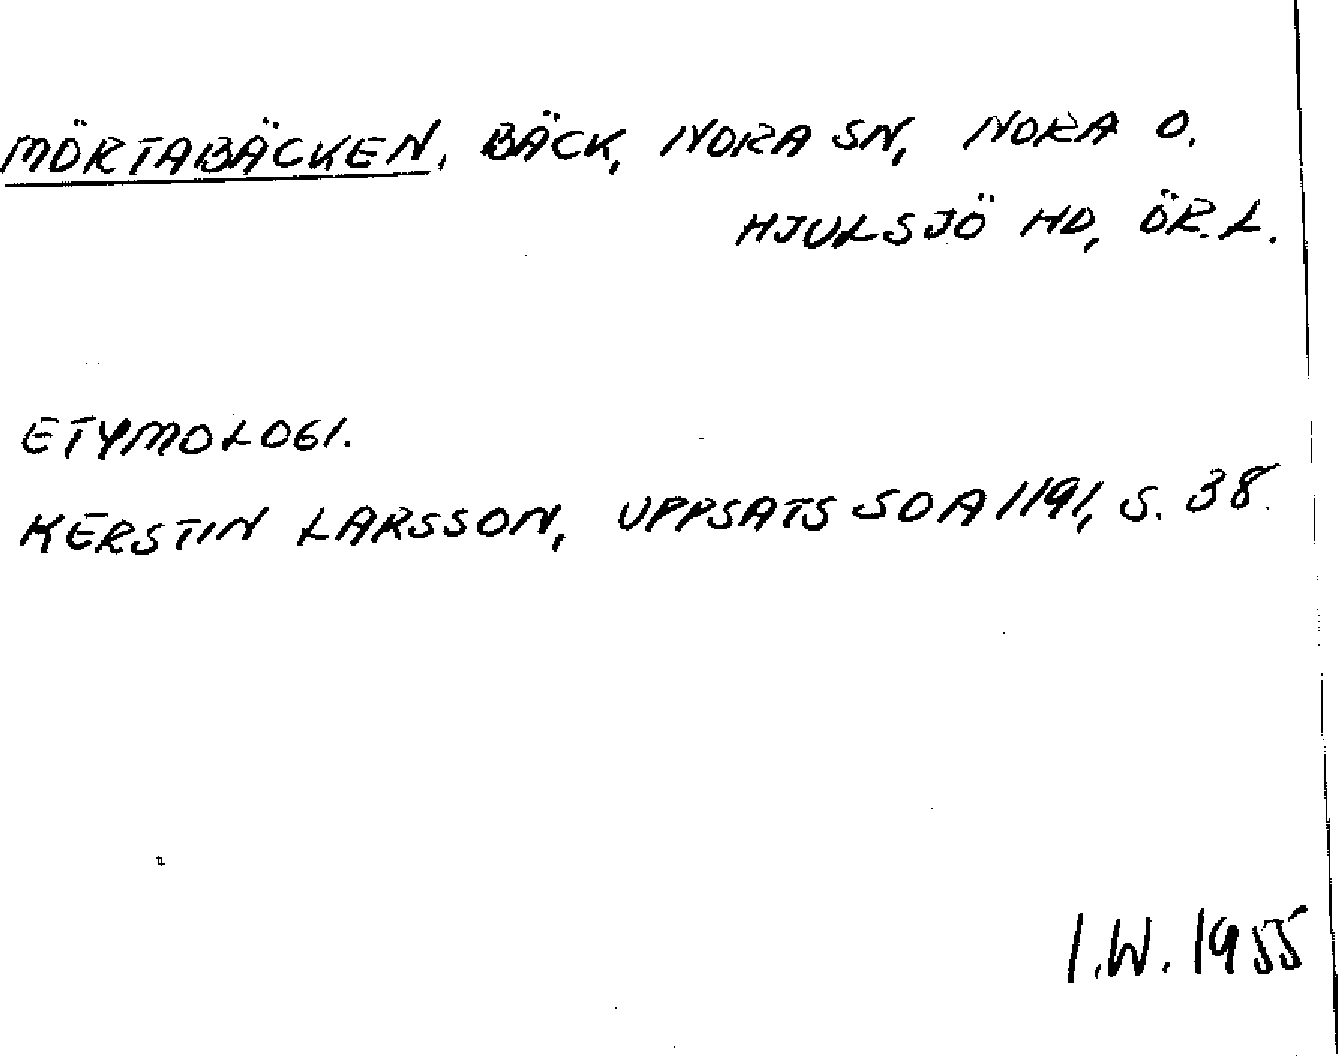 MÖRTABÄCKEN, BÄCK, NORA SN, NORA O.
HJULSJÖ HD, ÖR.L.
ETYMOLOGI.
KERSTIN LARSSON, UPPSATS SOA 1191, S. 38.
I.W. 1955